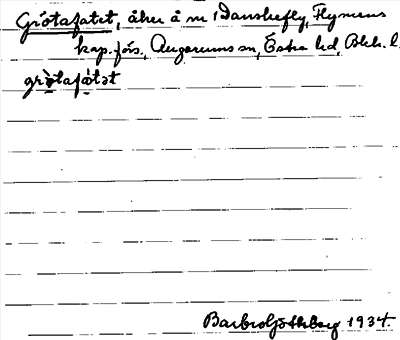 Grötafatet, åker å nr 1 Danskefly, Flymens
kap.förs., Augerums sn, Östra hd, Blek. l.
grötafàtet
Barbro Göthberg 1934.